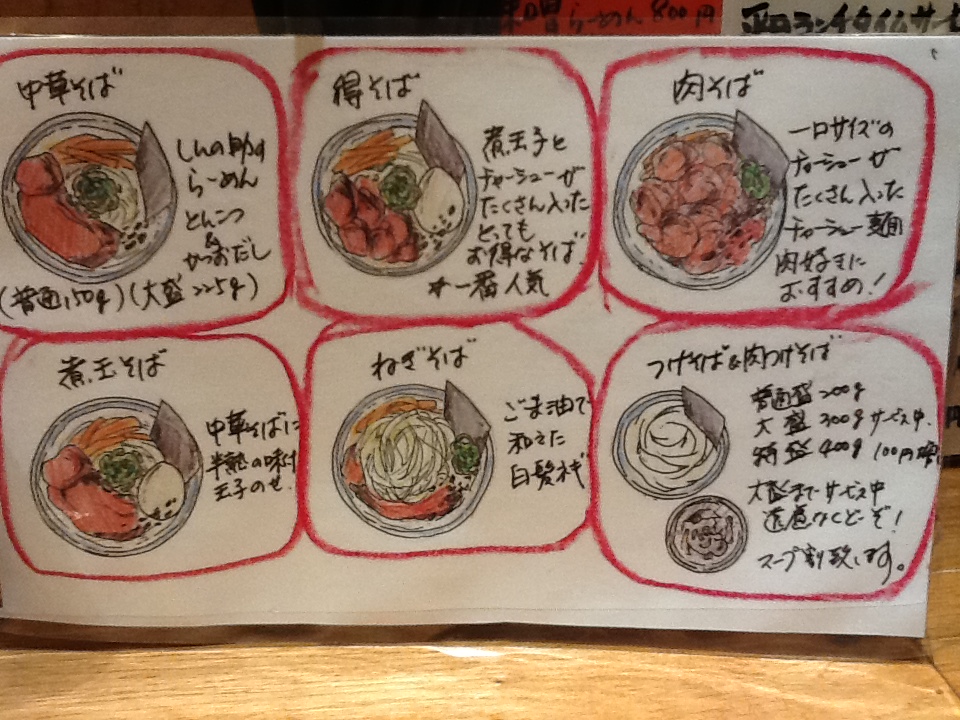 らーめん 800円
平日ランチタイムサービ
中華そば
しんの助の
らーめん
とんこつ
&
かつおだし
(普通150g)(大盛225g)
得そば
煮玉子と
チャーシューが
たくさん入った
とっても
お得なそば。
一番人気
肉そば
一口サイズの
チャーシューが
たくさん入った
チャーシュー麺
肉好きに
おすすめ!
煮玉そば
中華そばに
半熟の味付
玉子のせ。
ねぎそば
ごま油で
和えた
白髪ネギ
つけそば&肉つけそば
普通盛 200g
大盛 300g サービス中。
特盛 400g 100円増
大盛までサービス中
遠慮なくどーぞ!
スープ割致します。